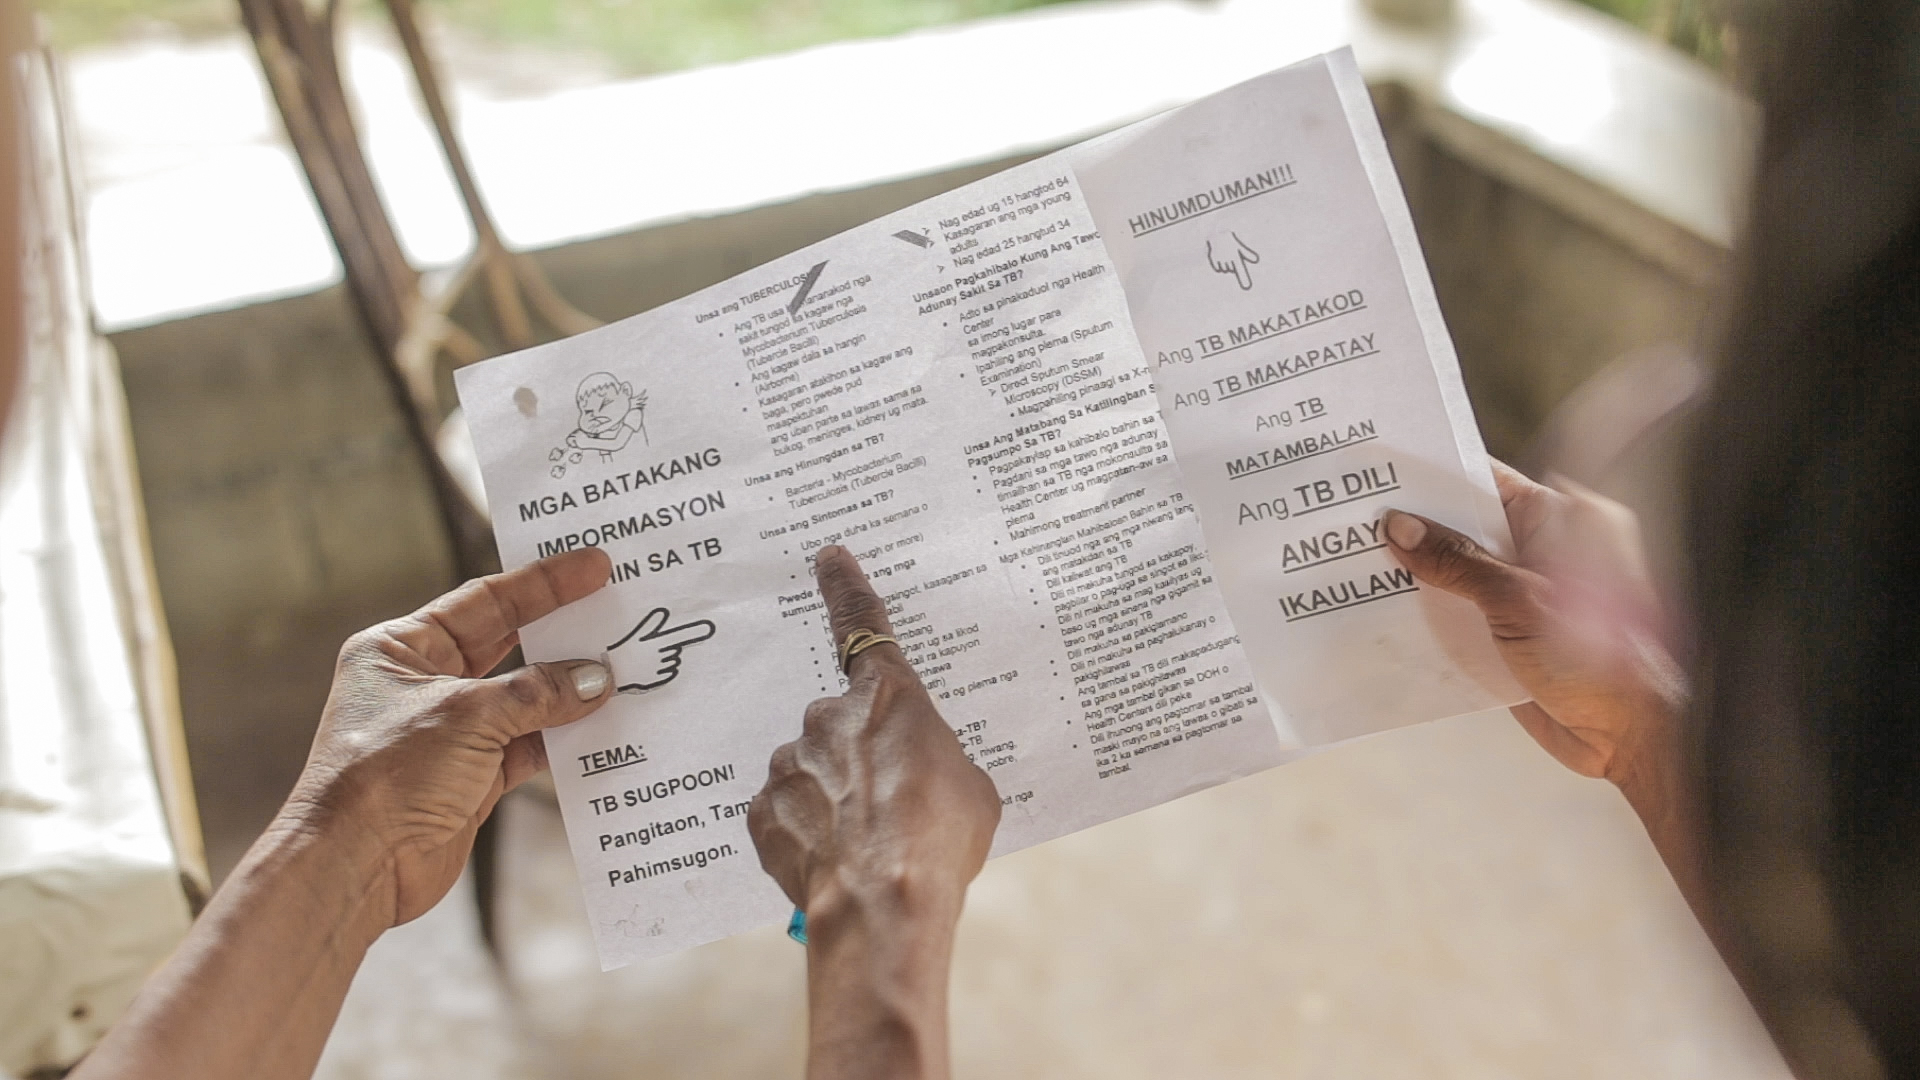 MGA BATAKANG
IMPORMASYON
HIN SA TB
TEMA:
TB SUGPOON!
Pangitaon, Tam
Pahimsugon.
Unsa ang TUBERCULOSI
Ang TB usa ka mananakod nga
sakit tungod sa kagaw nga
Mycobacterium Tuberculosis
(Tubercle Bacilli)
Ang kagaw dala sa hangin
(Airborne)
Kasagaran atakihon sa kagaw ang
baga, pero pwede pud
maapektuhan
ang uban parte sa lawas sama sa
bukog, meninges, kidney ug mata.
Unsa ang Hinungdan sa TB?
Bacteria - Mycobacterium
Tuberculosis (Tubercle Bacilli)
Unsa ang Sintomas sa TB?
Ubo nga duha ka semana o
cough or more)
ang mga
Pwede
sumusu
ngsingot, kasagaran sa
nokaon
timbang
ghan ug sa likod
dali ra kapuyon
nhawa
ath)
wa og plema nga
TB?
-TB
niwang,
pobre,
kit nga
Nag edad ug 15 hangtod 64
Kasagaran ang mga young
adults
Nag edad 25 hangtud 34
Unsaon Pagkahibalo Kung Ang Tawo
Adunay Sakit Sa TB?
Adto sa pinakaduol nga Health
Center
sa imong lugar para
magpakonsulta.
Ipahiling ang plema (Sputum
Examination)
Direct Sputum Smear
Microscopy (DSSM)
Magpahiling pinaagi sa X-r
Unsa Ang Matabang Sa Katilingban S
Pagsumpo Sa TB?
Pagpakaylap sa kahibalo bahin sa T
Pagdani sa mga tawo nga adunay
timailhan sa TB nga mokonsulta sa
Health Center ug magpatan-aw sa
plema
Mahimong treatment partner
Mga Kahinanglan Mahibaloan Bahin sa TB
Dili tinuod nga ang mga niwang lang
ang matakdan sa TB
Dili kaliwat ang TB
Dili ni makuha tungod sa kakapoy,
pagbilar o pag-uga sa singot sa liko
Dili ni makuha sa mag kawilyas ug
baso ug mga sinina nga gigamit sa
tawo nga adunay TB
Dili makuha sa pakiglamano
Dili ni makuha sa paghalukanay o
pakighilawas
Ang tambal sa TB dili makapadugang
sa gana sa pakighilawas
Ang mga tambal gikan sa DOH o
Health Centers dili peke
Dili ihunong ang pagtomar sa tambal
maski mayo na ang lawas o gibati sa
ika 2 ka semana sa pagtomar sa
tambal.
HINUMDUMAN!!!
Ang TB MAKATAKOD
Ang TB MAKAPATAY
Ang TB
MATAMBALAN
Ang TB DILI
ANGAY
IKAULAW